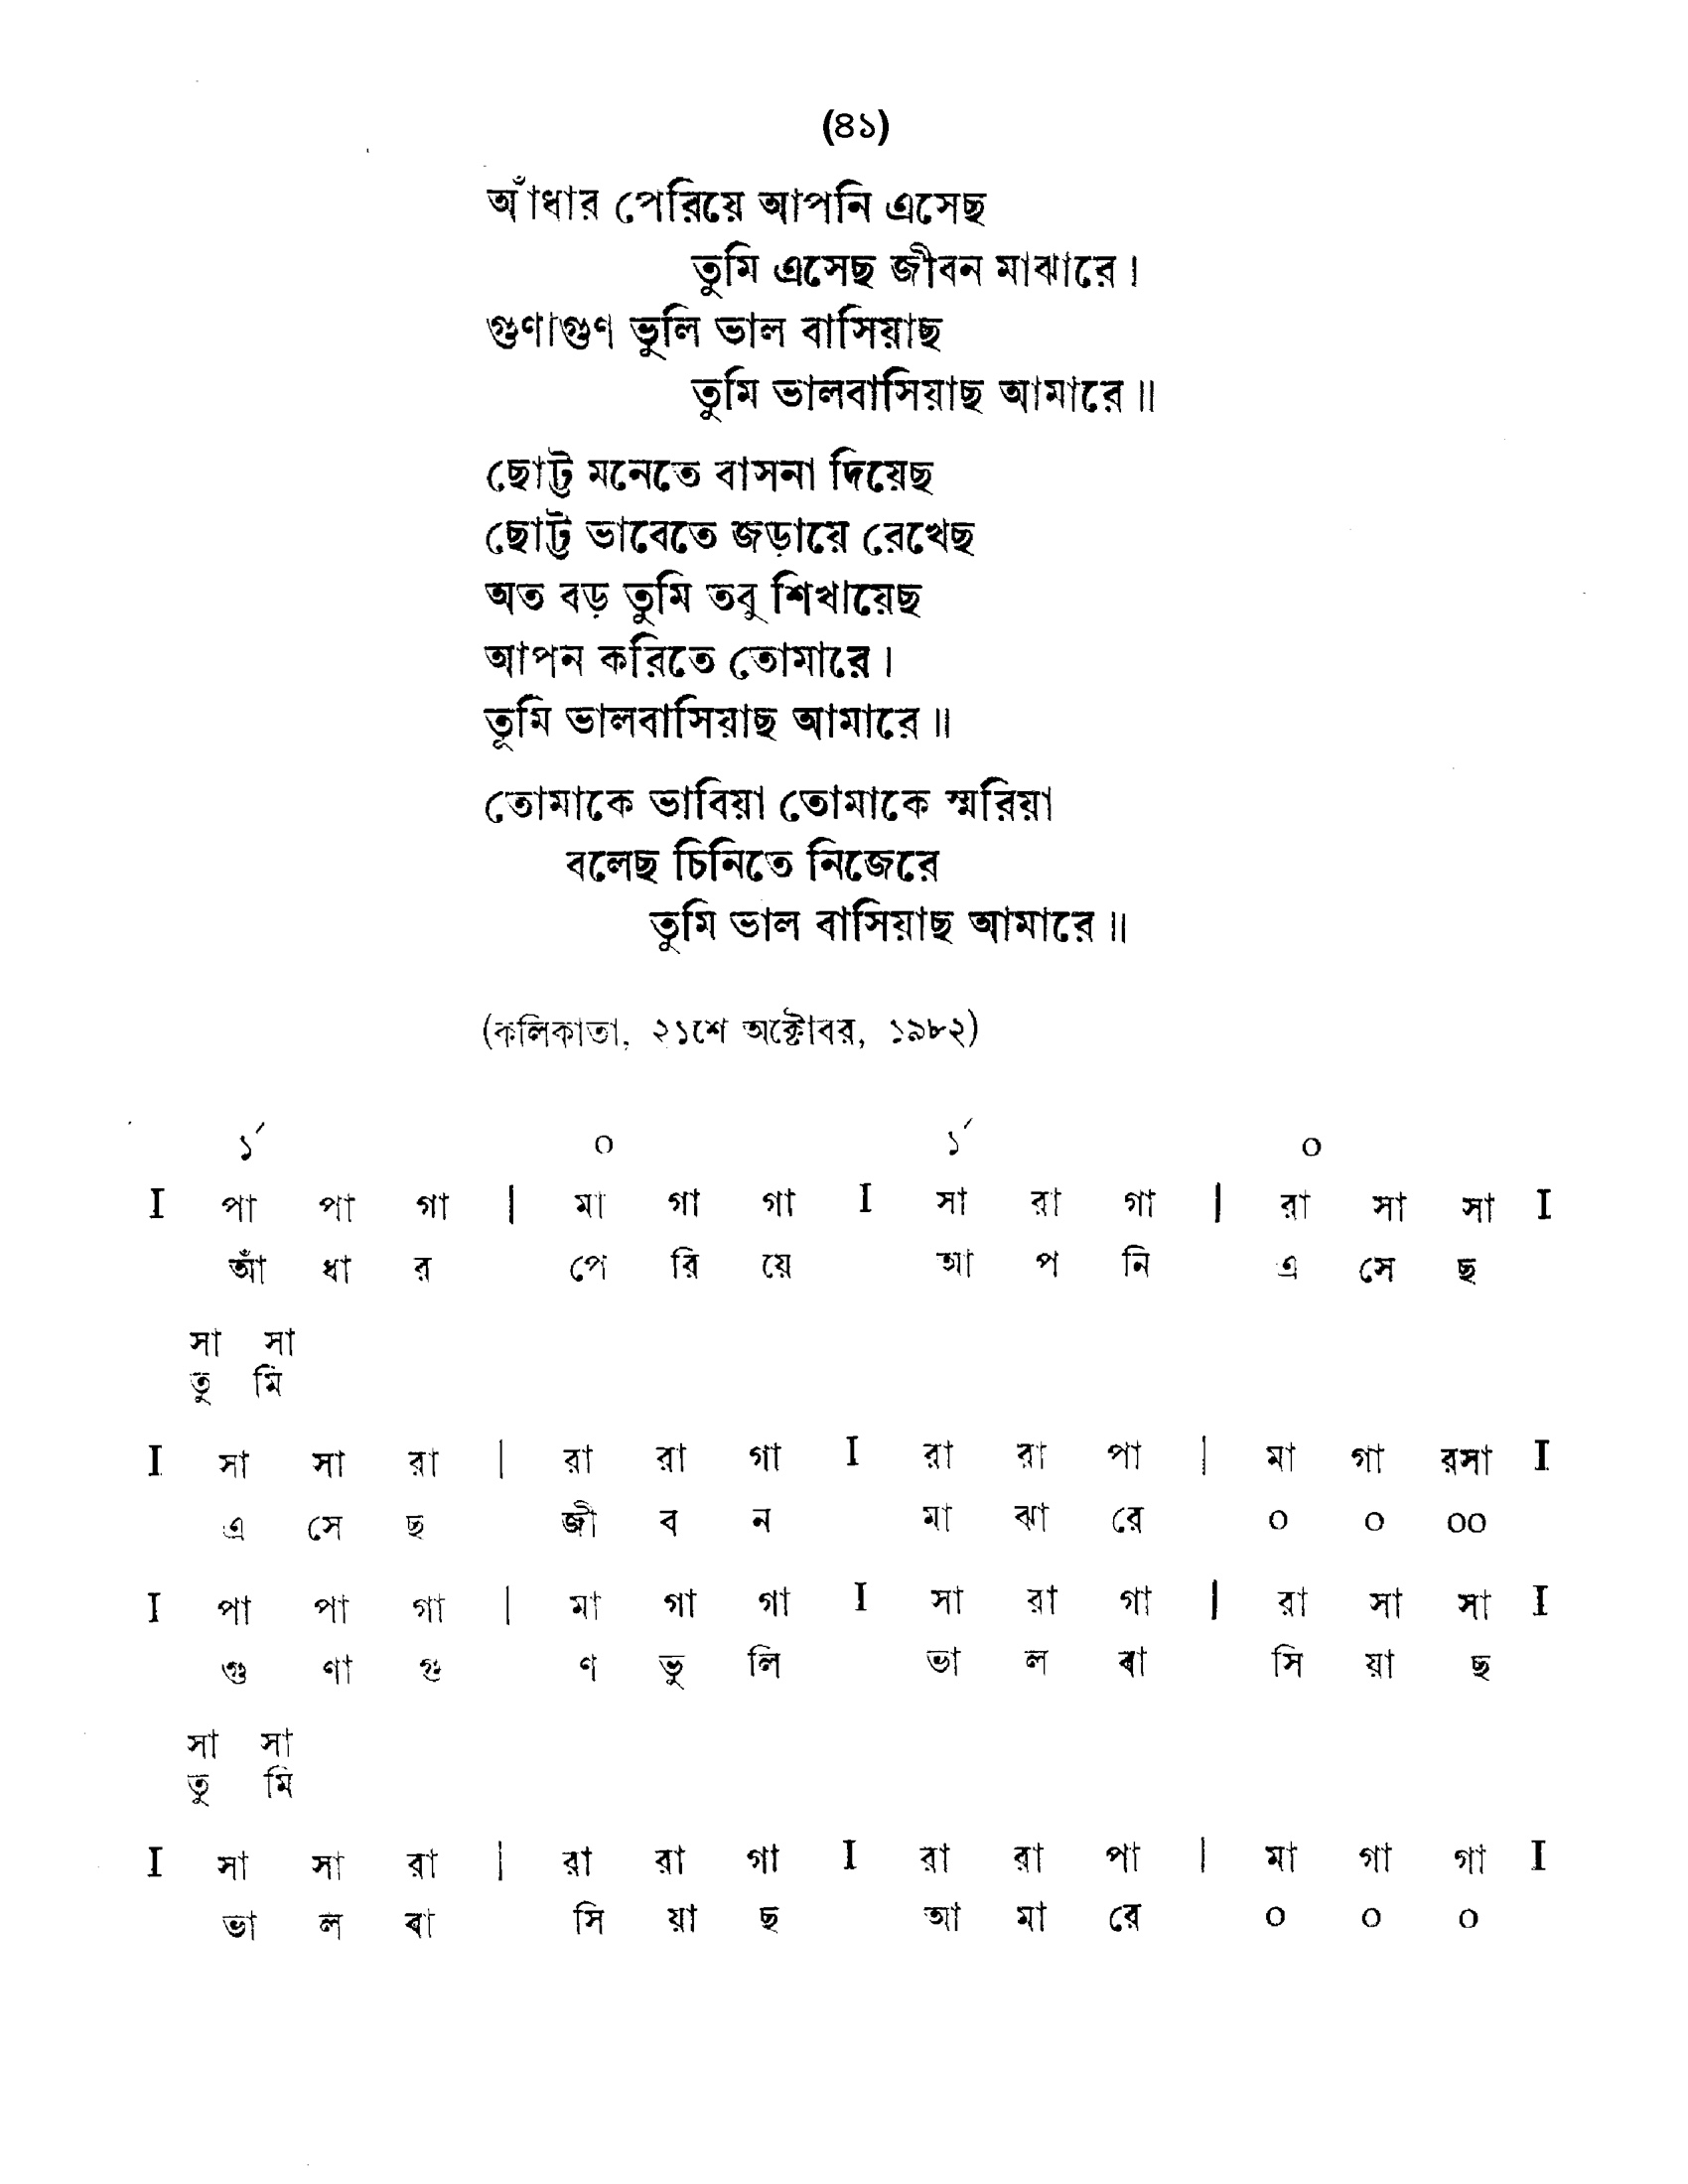 (৪১)
আঁধার পেরিয়ে আপনি এসেছ
তুমি এসেছ জীবন মাঝারে।
গুণাগুণ ভুলি ভাল বাসিয়াছ
তুমি ভালবাসিয়াছ আমারে॥
ছোট্ট মনেতে বাসনা দিয়েছ
ছোট্ট ভাবেতে জড়ায়ে রেখেছ
অত বড় তুমি তবু শিখায়েছ
আপন করিতে তোমারে।
তূমি ভালবাসিয়াছ আমারে॥
তোমাকে ভাবিয়া তোমাকে স্মরিয়া
বলেছ চিনিতে নিজেরে
তুমি ভাল বাসিয়াছ আমারে॥
(কলিকাতা, ২১শে অক্টোবর, ১৯৮২)
১´ ০ ১´ ০
I পা পা গা | মা গা গা I সা রা গা | রা সা সা I
আঁ ধা র পে রি য়ে আ প নি এ সে ছ
সা সা
তু মি
I সা সা রা | রা রা গা I রা রা পা | মা গা রসা I
এ সে ছ জী ব ন মা ঝা রে ০ ০ ০০
I পা পা গা | মা গা গা I সা রা গা | রা সা সা I
গু ণা গু ণ ভু লি ভা ল বা সি য়া ছ
সা সা
তু মি
I সা সা রা | রা রা গা I রা রা পা | মা গা গা I
ভা ল বা সি য়া ছ আ মা রে ০ ০ ০